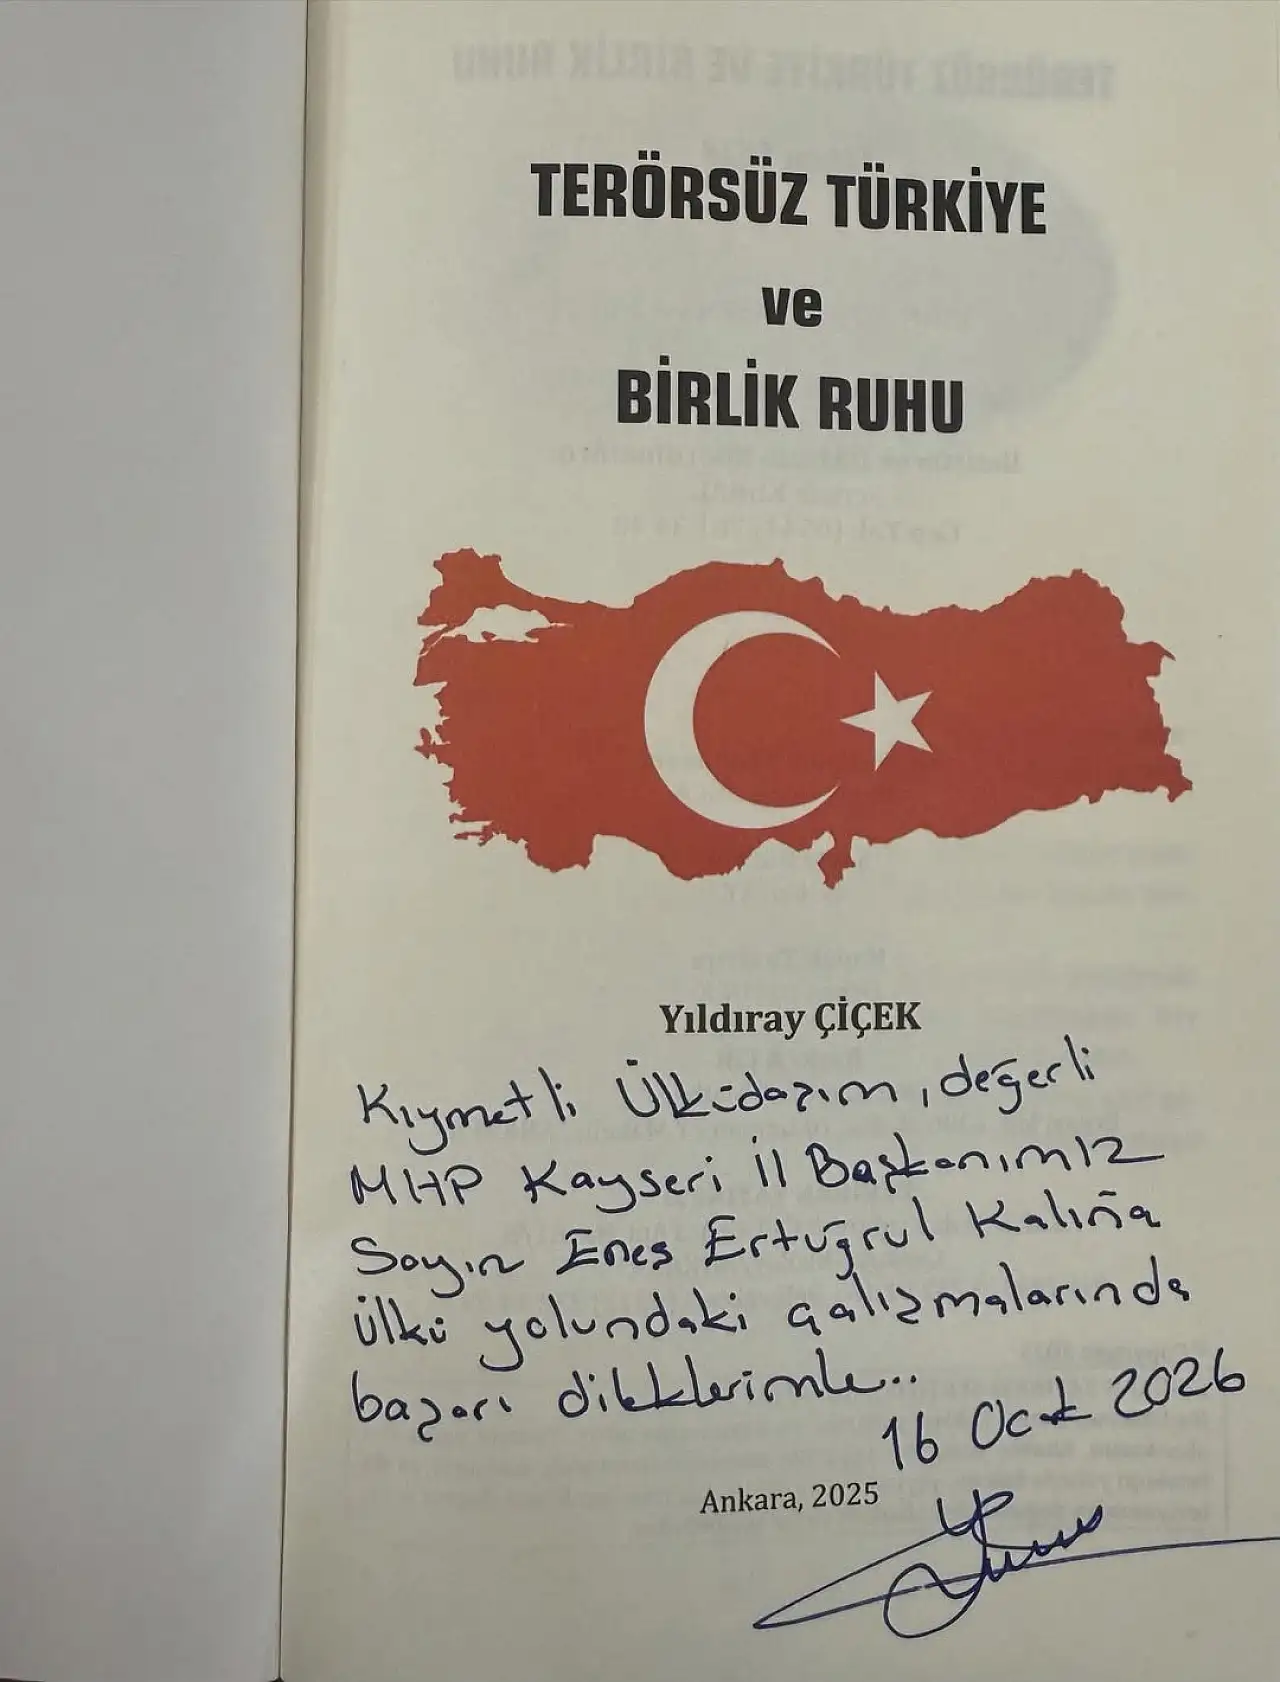 TERÖRSÜZ TÜRKİYE
ve
BİRLİK RUHU
Yıldıray ÇİÇEK
Kıymetli Ülküdaşım, değerli
MHP Kayseri İl Başkanımız
Sayın Enes Ertuğrul Kalın'a
ülkü yolundaki çalışmalarında
başarı dileklerimle..
16 Ocak 2026
Ankara, 2025